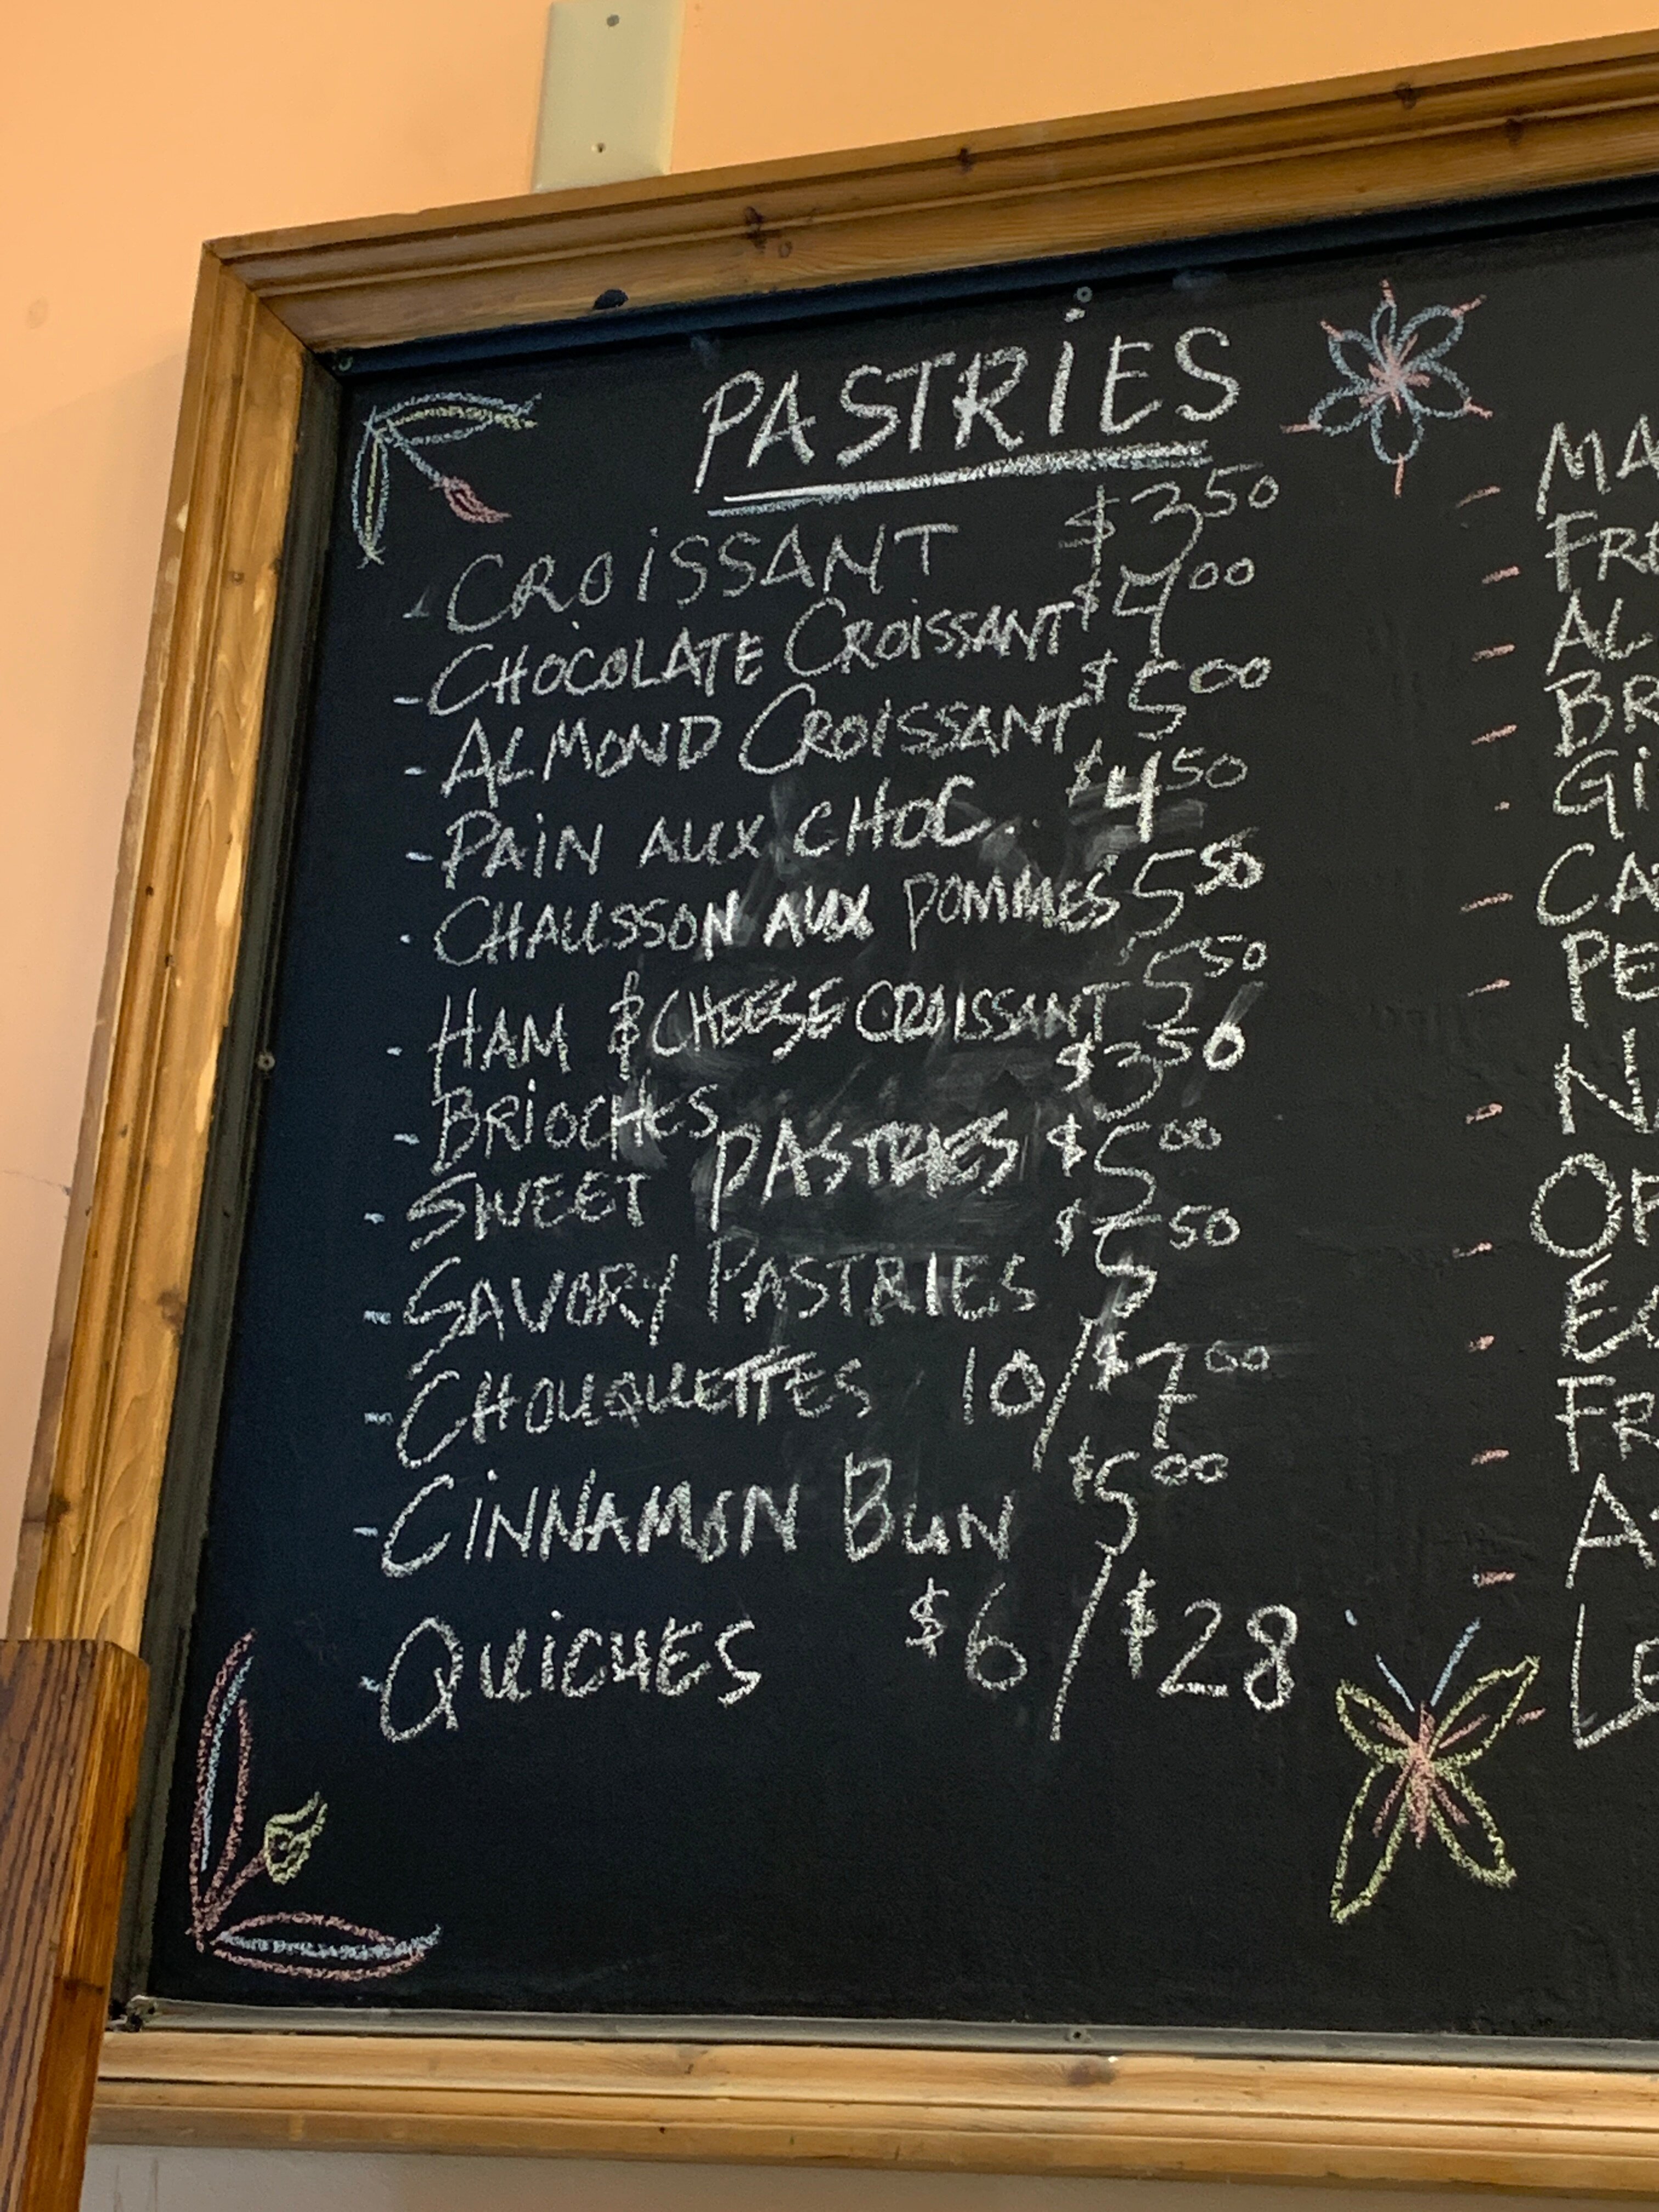 PASTRIES
- CROISSANT $3.50
- CHOCOLATE CROISSANT $4.00
- ALMOND CROISSANT $5.00
- PAIN AUX CHOC. $4.50
- CHAUSSON AUX POMMES 5.50
- HAM & CHEESE CROISSANT 5.50
- BRIOCHES $3.50
- SWEET PASTRIES $5.00
- SAVORY PASTRIES $5.50
- CHOUQUETTES 10/$7.00
- CINNAMON BUN $5.00
- QUICHES $6/$28
- MA
- FRE
- AL
- BR
GI
- CA
- PE
- N
- OF
- E
- FR
- A
- LE